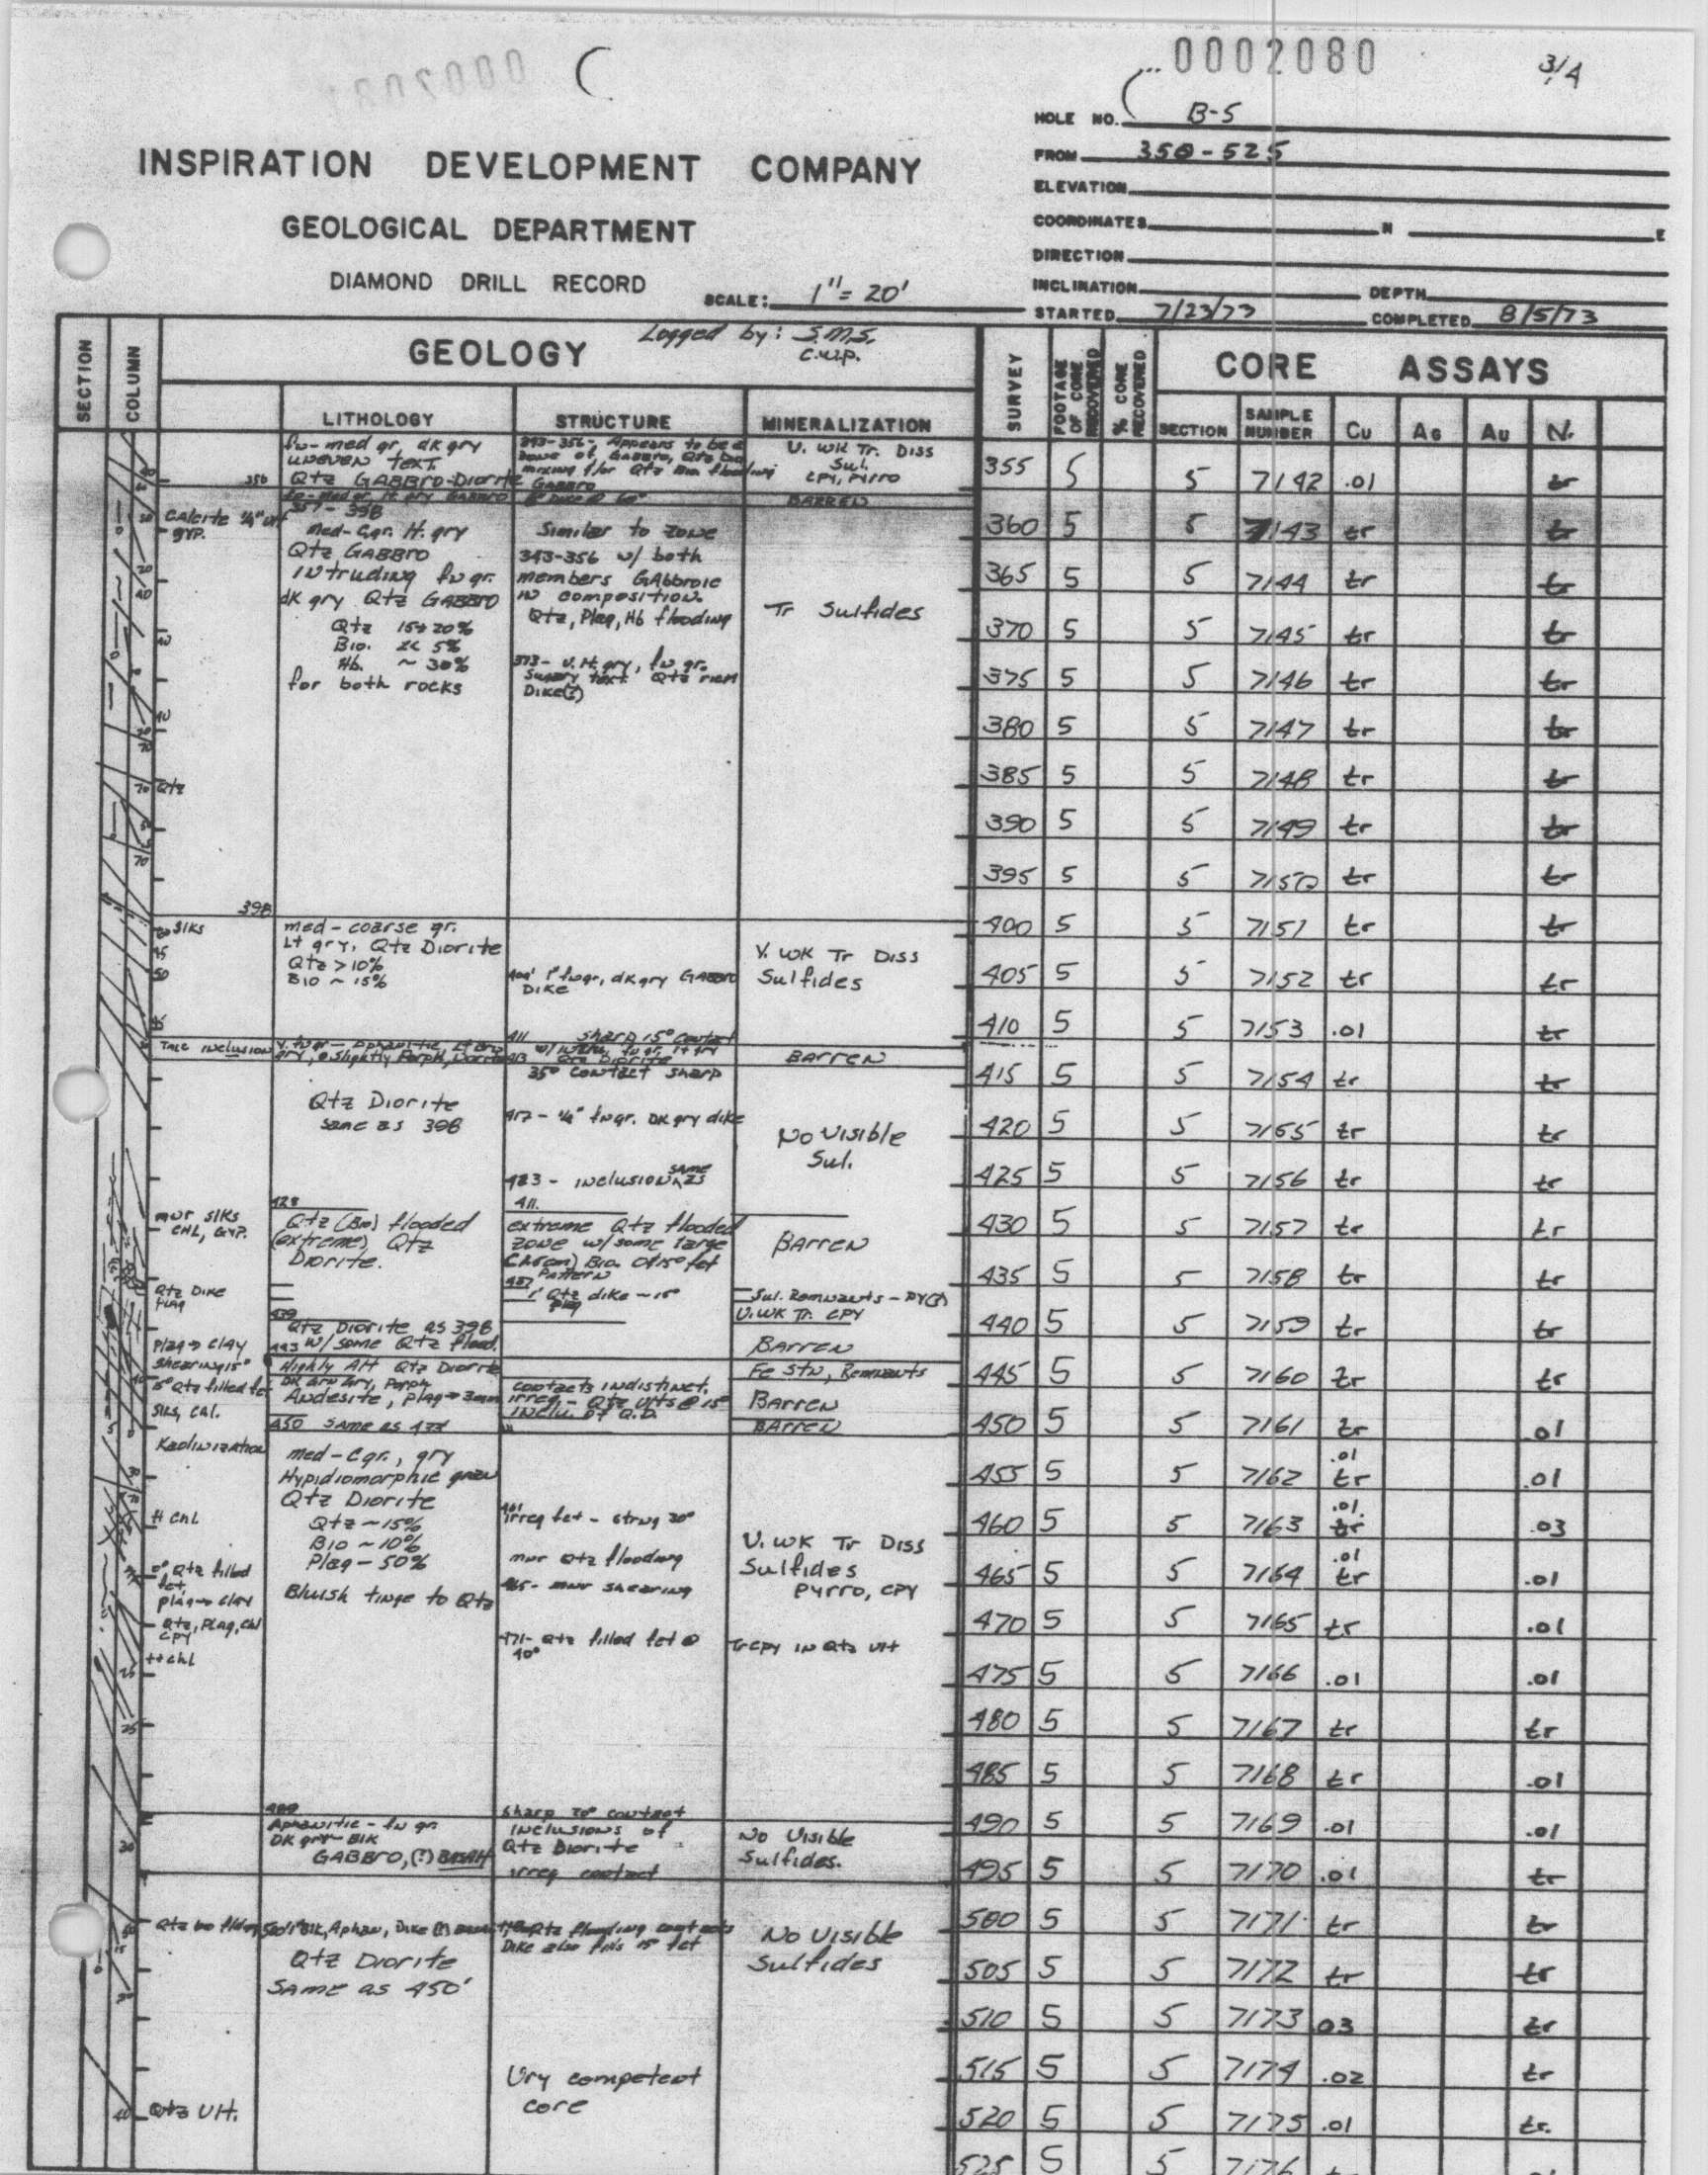 0002080
3/4
HOLE NO. B-5
FROM 350-525
INSPIRATION DEVELOPMENT COMPANY
ELEVATION
GEOLOGICAL DEPARTMENT
COORDINATES N E
DIRECTION
DIAMOND DRILL RECORD
SCALE: 1"= 20'
INCLINATION DEPTH
STARTED 7/23/73 COMPLETED 8/5/73
SECTION
COLUMN
GEOLOGY
Logged by: S.M.S.
C.W.P.
LITHOLOGY
STRUCTURE
MINERALIZATION
SURVEY
FOOTAGE OF CORE RECOVERED
% CORE RECOVERED
CORE ASSAYS
SECTION
SAMPLE NUMBER
Cu
AG
AU
Ni
fn-med gr, dk gry
uneven text.
356 Qtz GABBRO-Diorite
343-356- Appears to be a
zone of GABBRO, Qtz
V. WK Tr. Diss
Sul.
CPY, Pyrro
BARREN
CALCITE 1/4" Vlt
GYP.
357-398
med-Cgr. lt. gry
Qtz GABBRO
intruding fn gr.
dk gry Qtz GABBRO
Qtz 15+20%
Bio. 5%
Hb. ~ 30%
for both rocks
Similar to zone
343-356 w/ both
members GAbbroic
in composition.
Qtz, Plag, Hb flooding
373- v. lt. gry, fn gr.
Sugary text. Qtz rich
Dike(?)
Tr Sulfides
Qtz
398
slks
med-coarse gr.
Lt gry, Qtz Diorite
Qtz >10%
Bio ~ 15%
fn gr, dk gry GABBRO
Dike
V. WK Tr Diss
Sulfides
Talc inclusion
411 sharp 15° contact
35° contact sharp
BARREN
Qtz Diorite
same as 398
417- 1/4" fn gr. DK gry dike
423- inclusion same as
411.
No Visible
Sul.
mnr slks
CHL, GYP.
428
Qtz (Bio) flooded
(extreme) Qtz
Diorite.
extreme Qtz flooded
zone w/ some large
BARREN
Qtz Dike
PLAG
437
1' Qtz dike ~15°
plag
Sul. Remnants - PY(?)
V. WK Tr. CPY
439
Qtz Diorite as 398
443 w/ some Qtz flood.
BARREN
Plag→ clay
shearing 15°
Highly Alt Qtz Diorite
Fe Stn, Remnants
5° Qtz filled fct
DK grn gry, Porph
Andesite, plag→3mm
contacts indistinct.
irreg- Qtz vlts @ 15°
inclu. of Q.D.
BARREN
slks, Cal.
BARREN
Kaolinization
med-Cgr., gry
Hypidiomorphic gran
Qtz Diorite
Qtz ~15%
Bio ~10%
Plag- 50%
Bluish tinge to Qtz
461
irreg fct- strng 30°
mnr Qtz flooding
465- mnr shearing
V. WK Tr Diss
Sulfides
Pyrro, CPY
H chl
5° Qtz filled
fct,
plag→ clay
Qtz, PLAG, chl
CPY
++chl
471- Qtz filled fct @
40°
Tr CPY in Qtz vlt
489
Aphanitic- fn gr.
DK gry- Blk
GABBRO, (?) Basalt
sharp 30° contact
inclusions of
Qtz Diorite
irreg contact
No Visible
Sulfides.
Qtz Diorite
SAME as 450'
Dike also fills 15° fct
No Visible
Sulfides
Vry competent
core
Qtz Vlt.
355 5 5 7142 .01 tr
360 5 5 7143 tr tr
365 5 5 7144 tr tr
370 5 5 7145 tr tr
375 5 5 7146 tr tr
380 5 5 7147 tr tr
385 5 5 7148 tr tr
390 5 5 7149 tr tr
395 5 5 7150 tr tr
400 5 5 7151 tr tr
405 5 5 7152 tr tr
410 5 5 7153 .01 tr
415 5 5 7154 tr tr
420 5 5 7155 tr tr
425 5 5 7156 tr tr
430 5 5 7157 tr tr
435 5 5 7158 tr tr
440 5 5 7159 tr tr
445 5 5 7160 tr tr
450 5 5 7161 tr .01
455 5 5 7162 .01 tr .01
460 5 5 7163 .01 tr .03
465 5 5 7164 .01 tr .01
470 5 5 7165 tr .01
475 5 5 7166 .01 .01
480 5 5 7167 tr tr
485 5 5 7168 tr .01
490 5 5 7169 .01 .01
495 5 5 7170 .01 tr
500 5 5 7171 tr tr
505 5 5 7172 tr tr
510 5 5 7173 .03 tr
515 5 5 7174 .02 tr
520 5 5 7175 .01 tr.
525 5 5 7176